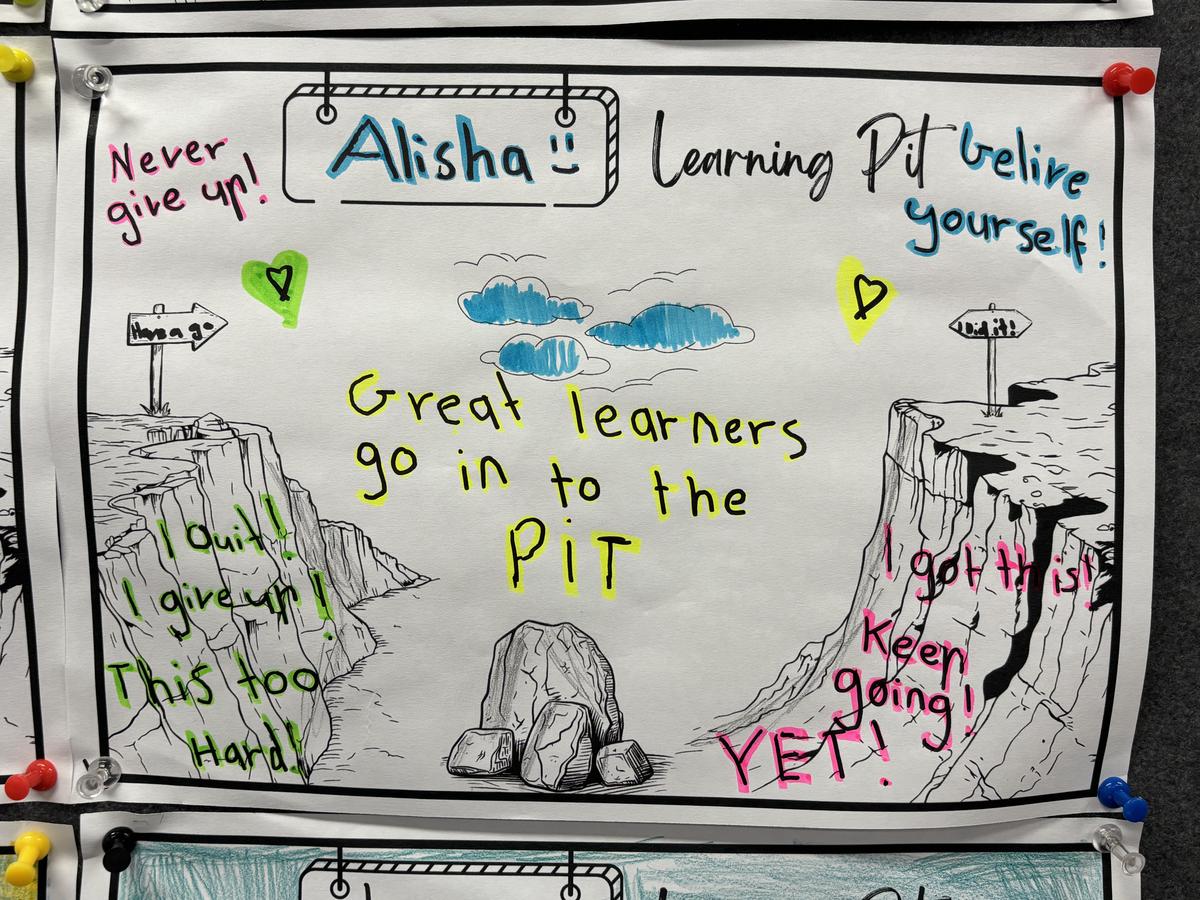 Alisha
Learning Pit
Never
give up!
belive
yourself!
Have a go
I Did it!
Great learners
go in to the
PiT
I Quit!
I give up!
This too
Hard!
I got this!
Keep
going!
YET!